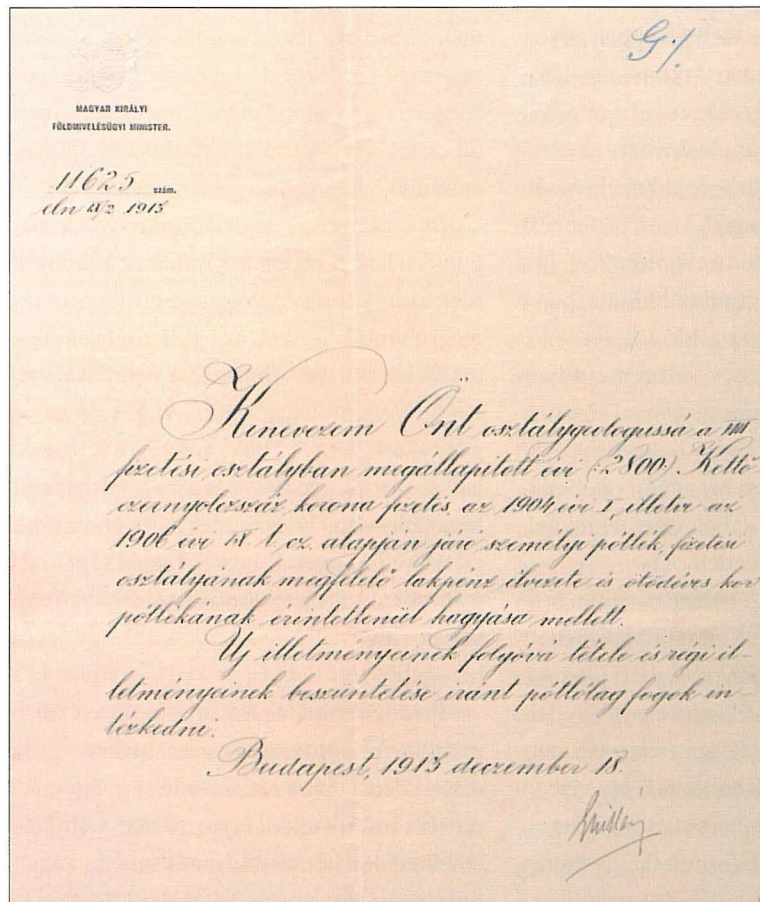 G·/.
MAGYAR KIRÁLYI
FÖLDMIVELÉSÜGYI MINISTER.
11625 szám.
eln IX/2 1913
Kinevezem Önt osztálygeologussá a VIII
fizetési osztályban megállapitott évi (:2800:) Kettő
ezernyolczszáz korona fizetés, az 1904 évi I, illetve az
1906 évi IX t. cz. alapján járó személyi pótlék, fizetési
osztályának megfelelő lakpénz élvezete és ötödéves kor
pótlékának érintetlenül hagyása mellett.
Uj illetményeinek folyóvá tétele és régi il-
letményeinek beszüntetése iránt pótlólag fogok in-
tézkedni.
Budapest, 1913 deczember 18.